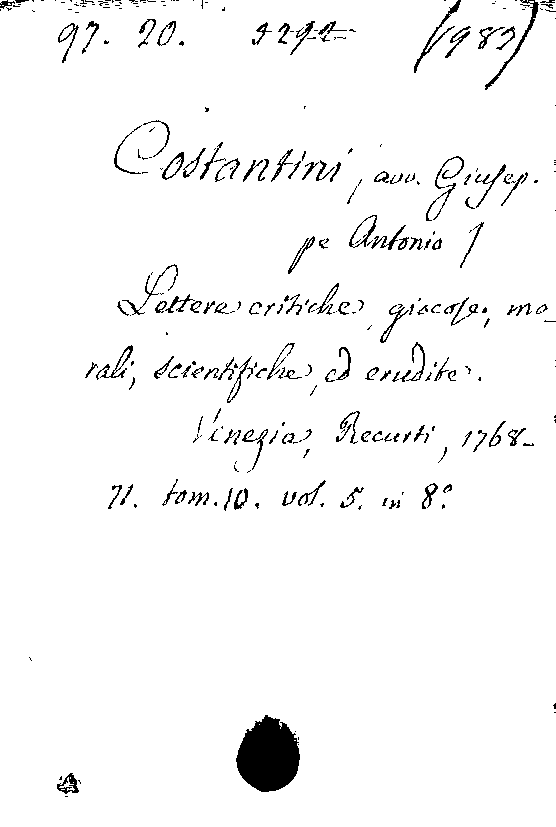 97. 20. 5292 (983)
Costantini, avv. Giusep.
pe Antonio /
Lettere critiche, giocose, mo_
rali, scientifiche, ed erudite.
Venezia, Recurti, 1768-
71. tom. 10. vol. 5. in 8.º